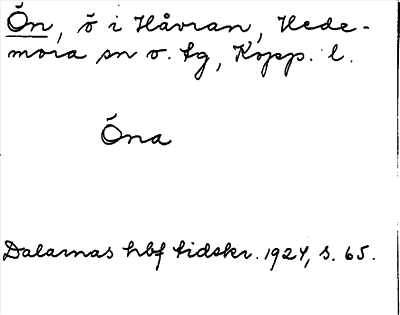 Ön, ö i Håvran, Hede-
mora sn o. tg, Kopp. l.
Öna
Dalarnas hbf tidskr. 1924, s. 65.